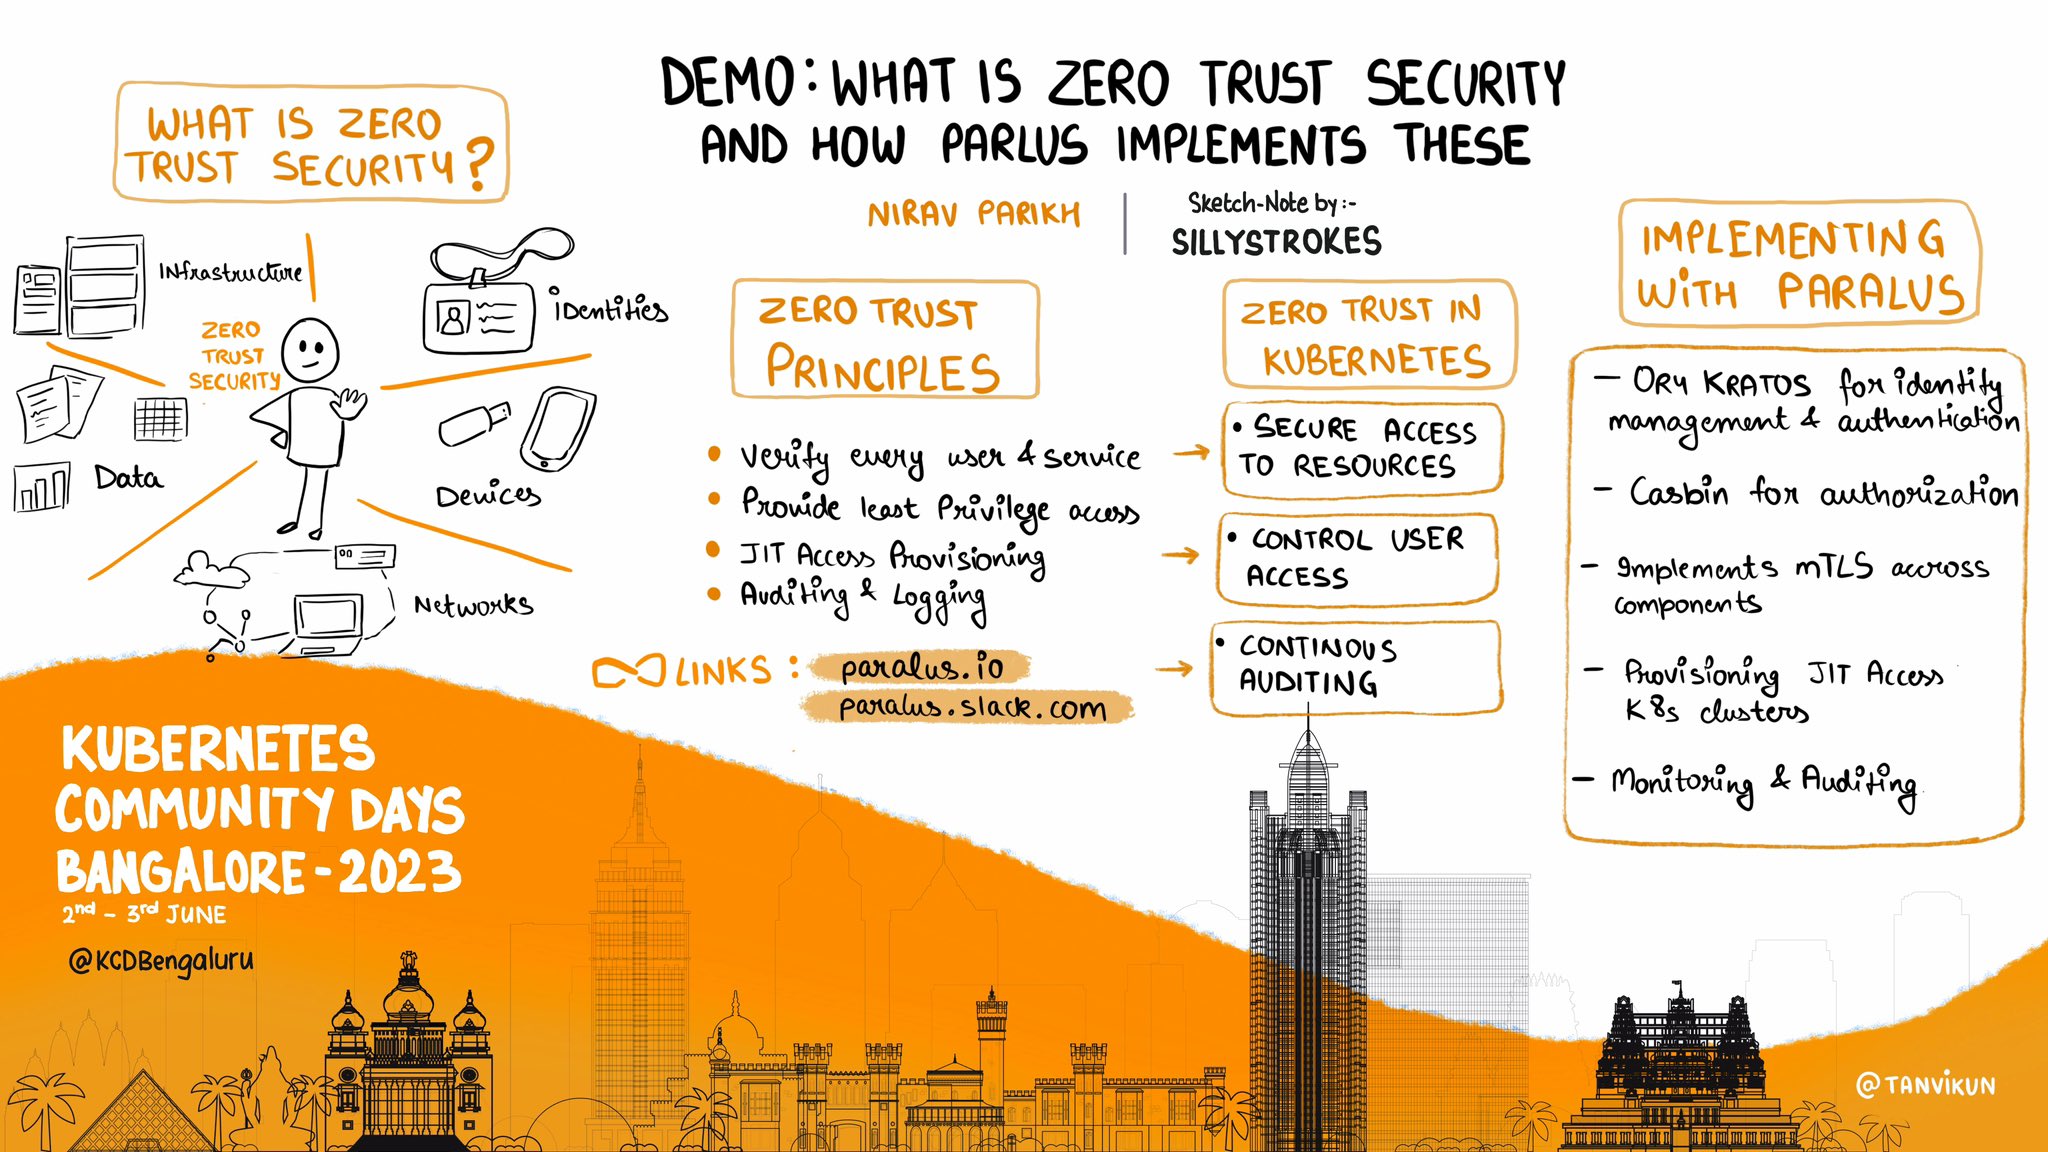 DEMO: WHAT IS ZERO TRUST SECURITY
AND HOW PARLUS IMPLEMENTS THESE
NIRAV PARIKH
Sketch-Note by:-
SILLYSTROKES
WHAT IS ZERO
TRUST SECURITY?
INfrastructure
iDentities
ZERO
TRUST
SECURITY
Data
Devices
Networks
ZERO TRUST
PRINCIPLES
• Verify every user & service
• Provide least Privilege access
• JIT Access Provisioning
• Auditing & Logging
LINKS:
paralus.io
paralus.slack.com
ZERO TRUST IN
KUBERNETES
• SECURE ACCESS
TO RESOURCES
• CONTROL USER
ACCESS
• CONTINOUS
AUDITING
IMPLEMENTING
WITH PARALUS
- ORY KRATOS for identity
management & authentication
- Casbin for authorization
- Implements mTLS accross
components
- Provisioning JIT Access
K8s clusters
- Monitoring & Auditing
KUBERNETES
COMMUNITY DAYS
BANGALORE - 2023
2nd - 3rd JUNE
@KCDBengaluru
@TANVIKUN